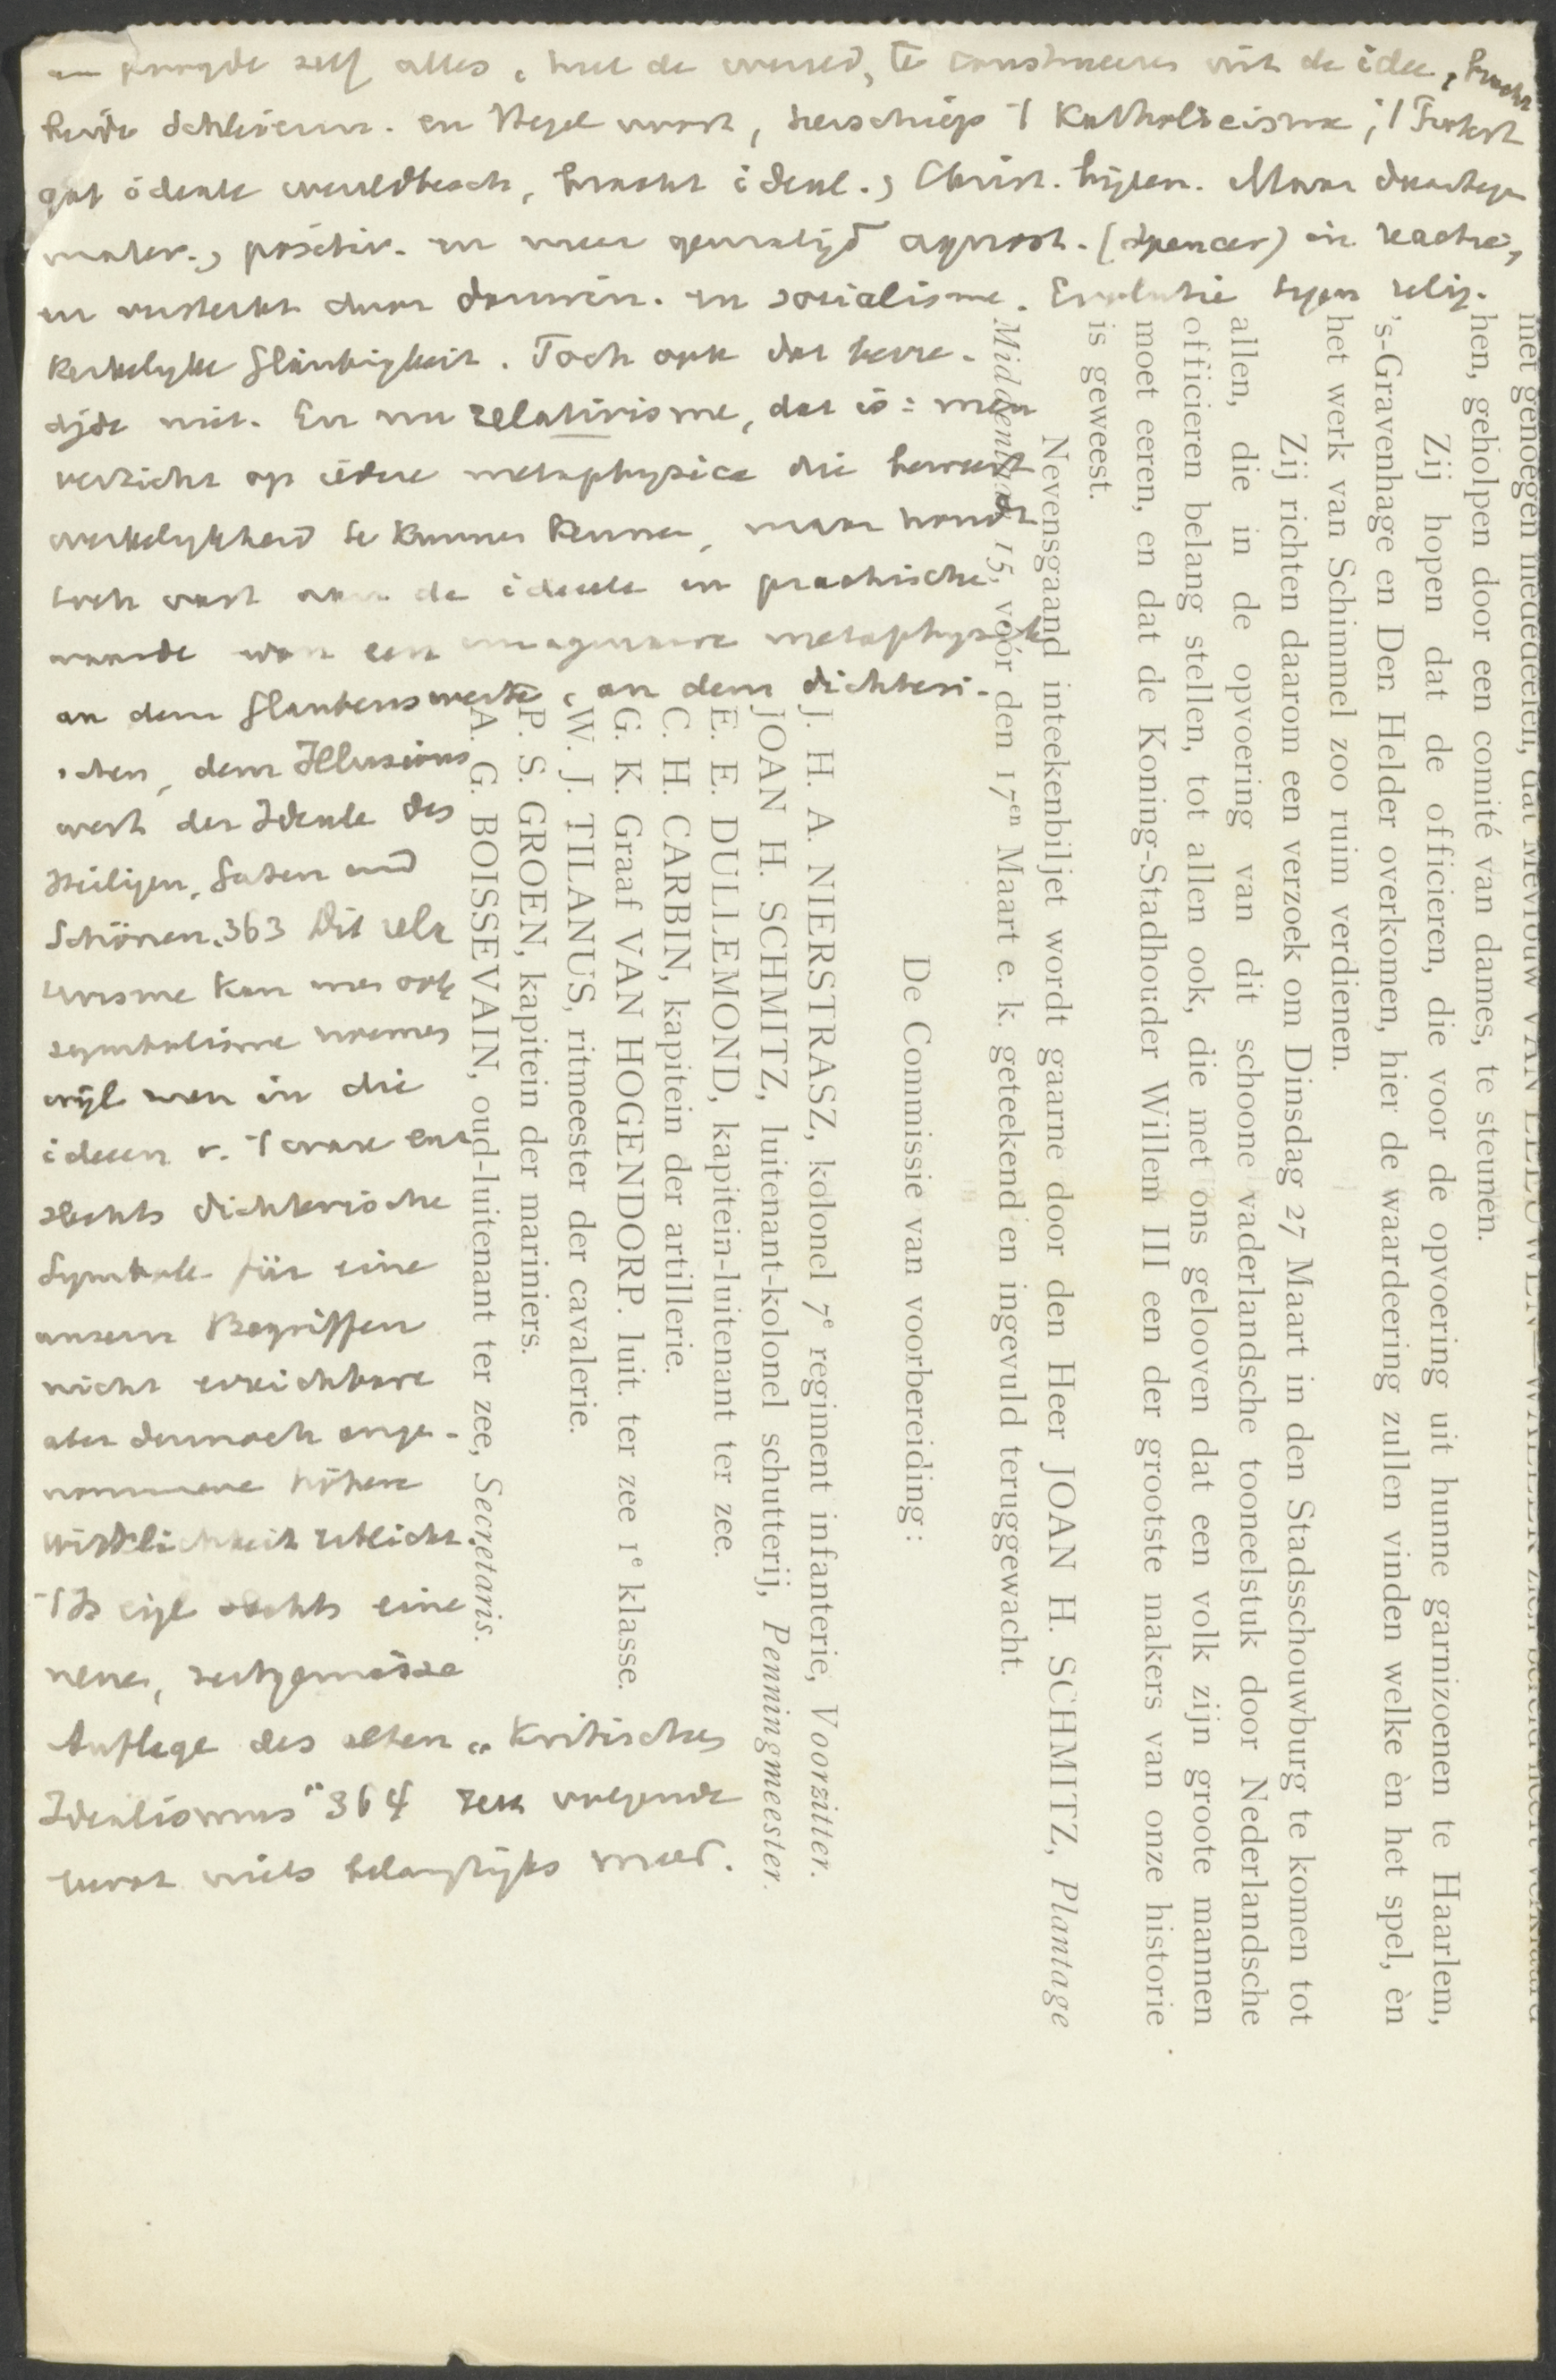 en poogde zelf alles, met de wereld, te construeeren uit de idee, bracht
beide Schleierm. en Hegel voort, herschiep 't Katholicisme, 't
gaf ideale wereldbesch., bracht ideal., Christ. Maar daartegen
mater., positiv. en meer gematigd agnost. (Spencer) in reactie,
en versterkt door Darwin. en socialisme. Evolutie tegen relig.
Kerkelyke Gläubigkeit. Toch ook dat bevre-
digde niet. En nu relativisme, dat is: men
verzicht op iedere metaphysica die beweert
werkelykheid te kunnen kennen, maar houdt
toch vast aan de ideeele en practische
waarde van een imaginaire metaphysiek
an dem Glaubenswerte, an dem dichteri-
schen, dem Illusions
wert der Ideale des
Heiligen, Guten und
Schönen. 363 Dit rela
tivisme kan men ook
symbolisme noemen
wijl men in die
ideeen v. 't ware enz
slechts dichterische
Symbole für eine
unsern Begriffen
nicht erreichbare
aber dennoch ange-
nommene höhere
Wirklichkeit erblickt.
't Is eigl slechts eine
neue, zeitgemässe
Auflage des alten „Kritischen
Idealismus" 364 Het volgende
bevat niets belangrijks meer.
met genoegen mededeelen, dat Mevrouw VAN EEUWEN—WALLER zich bereid heeft verklaard
hen, geholpen door een comité van dames, te steunen.
Zij hopen dat de officieren, die voor de opvoering uit hunne garnizoenen te Haarlem,
's-Gravenhage en Den Helder overkomen, hier de waardeering zullen vinden welke èn het spel, èn
het werk van Schimmel zoo ruim verdienen.
Zij richten daarom een verzoek om Dinsdag 27 Maart in den Stadsschouwburg te komen tot
allen, die in de opvoering van dit schoone vaderlandsche tooneelstuk door Nederlandsche
officieren belang stellen, tot allen ook, die met ons gelooven dat een volk zijn groote mannen
moet eeren, en dat de Koning-Stadhouder Willem III een der grootste makers van onze historie
is geweest.
Nevensgaand inteekenbiljet wordt gaarne door den Heer JOAN H. SCHMITZ, Plantage
Middenlaan 15, vóór den 17en Maart e. k. geteekend en ingevuld teruggewacht.
De Commissie van voorbereiding:
J. H. A. NIERSTRASZ, kolonel 7e regiment infanterie, Voorzitter.
JOAN H. SCHMITZ, luitenant-kolonel schutterij, Penningmeester.
E. E. DULLEMOND, kapitein-luitenant ter zee.
C. H. CARBIN, kapitein der artillerie.
G. K. Graaf VAN HOGENDORP. luit. ter zee 1e klasse.
W. J. TILANUS, ritmeester der cavalerie.
P. S. GROEN, kapitein der mariniers.
A. G. BOISSEVAIN, oud-luitenant ter zee, Secretaris.